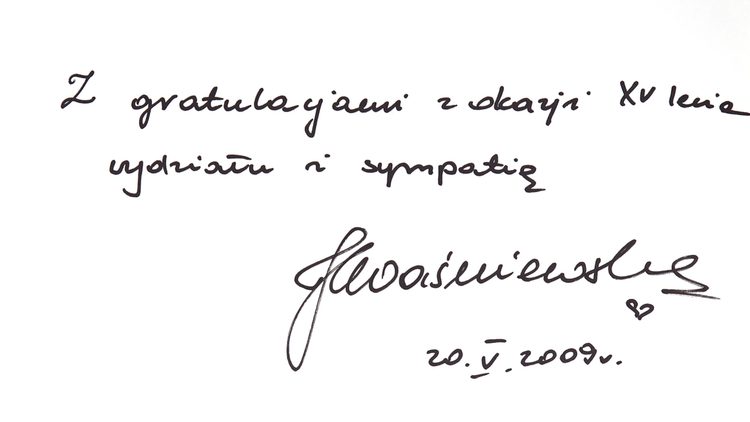 Z gratulacjami z okazji XV lecia
wydziału i sympatią
JKwaśniewska
20. V. 2009r.